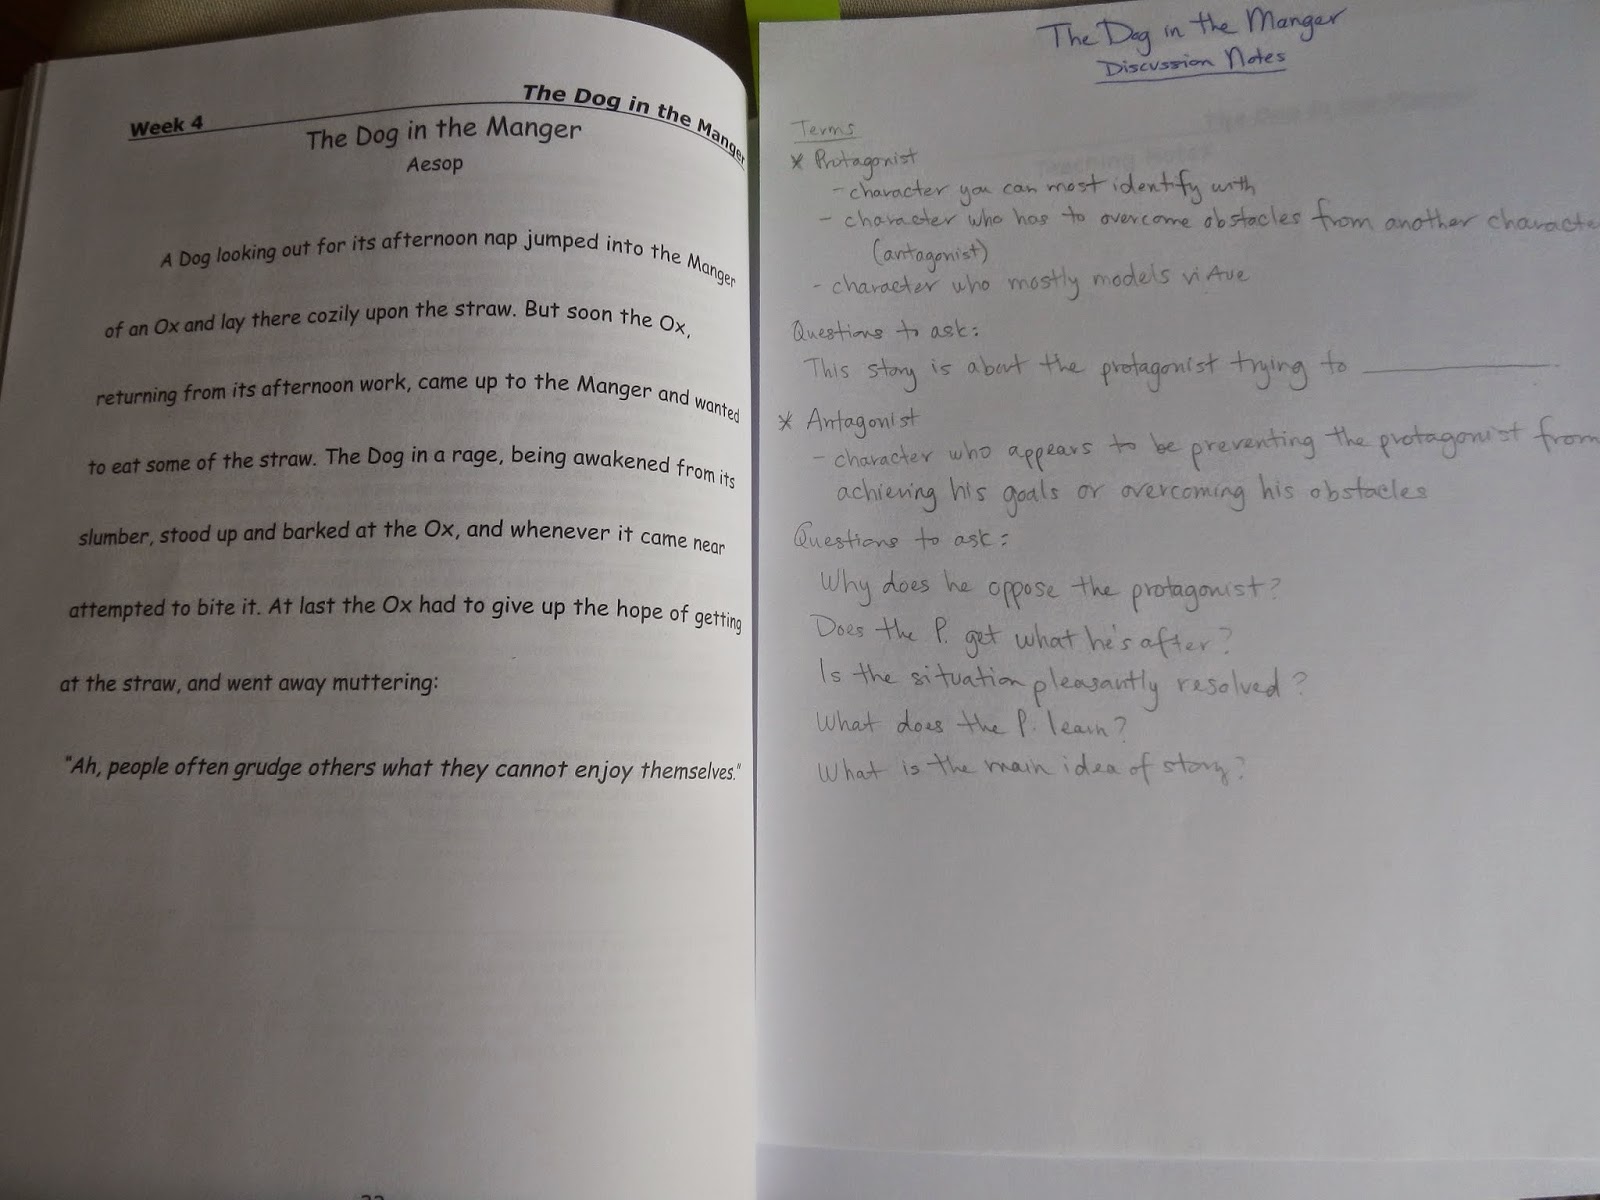 Week 4
The Dog in the Manger
The Dog in the Manger
Aesop
A Dog looking out for its afternoon nap jumped into the Manger
of an Ox and lay there cozily upon the straw. But soon the Ox,
returning from its afternoon work, came up to the Manger and wanted
to eat some of the straw. The Dog in a rage, being awakened from its
slumber, stood up and barked at the Ox, and whenever it came near
attempted to bite it. At last the Ox had to give up the hope of getting
at the straw, and went away muttering:
"Ah, people often grudge others what they cannot enjoy themselves."
The Dog in the Manger
Discussion Notes
Terms
* Protagonist
- character you can most identify with
- character who has to overcome obstacles from another characte
(antagonist)
- character who mostly models virtue
Questions to ask:
This story is about the protagonist trying to ________.
* Antagonist
- character who appears to be preventing the protagonist from
achieving his goals or overcoming his obstacles
Questions to ask:
Why does he oppose the protagonist?
Does the P. get what he's after?
Is the situation pleasantly resolved?
What does the P. learn?
What is the main idea of story?